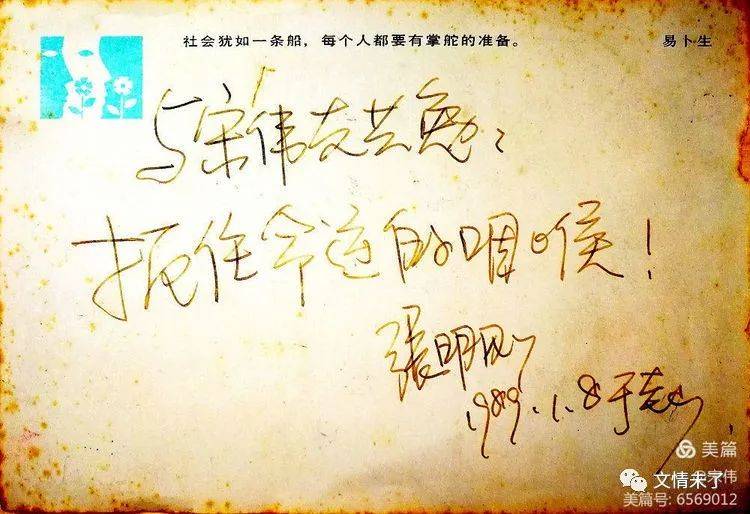 社会犹如一条船，每个人都要有掌舵的准备。 易卜生
与宋伟友共勉：
扼住命运的咽喉！
張明刚
1989.1.8于
美篇
宋伟
文情来了
美篇号: 6569012